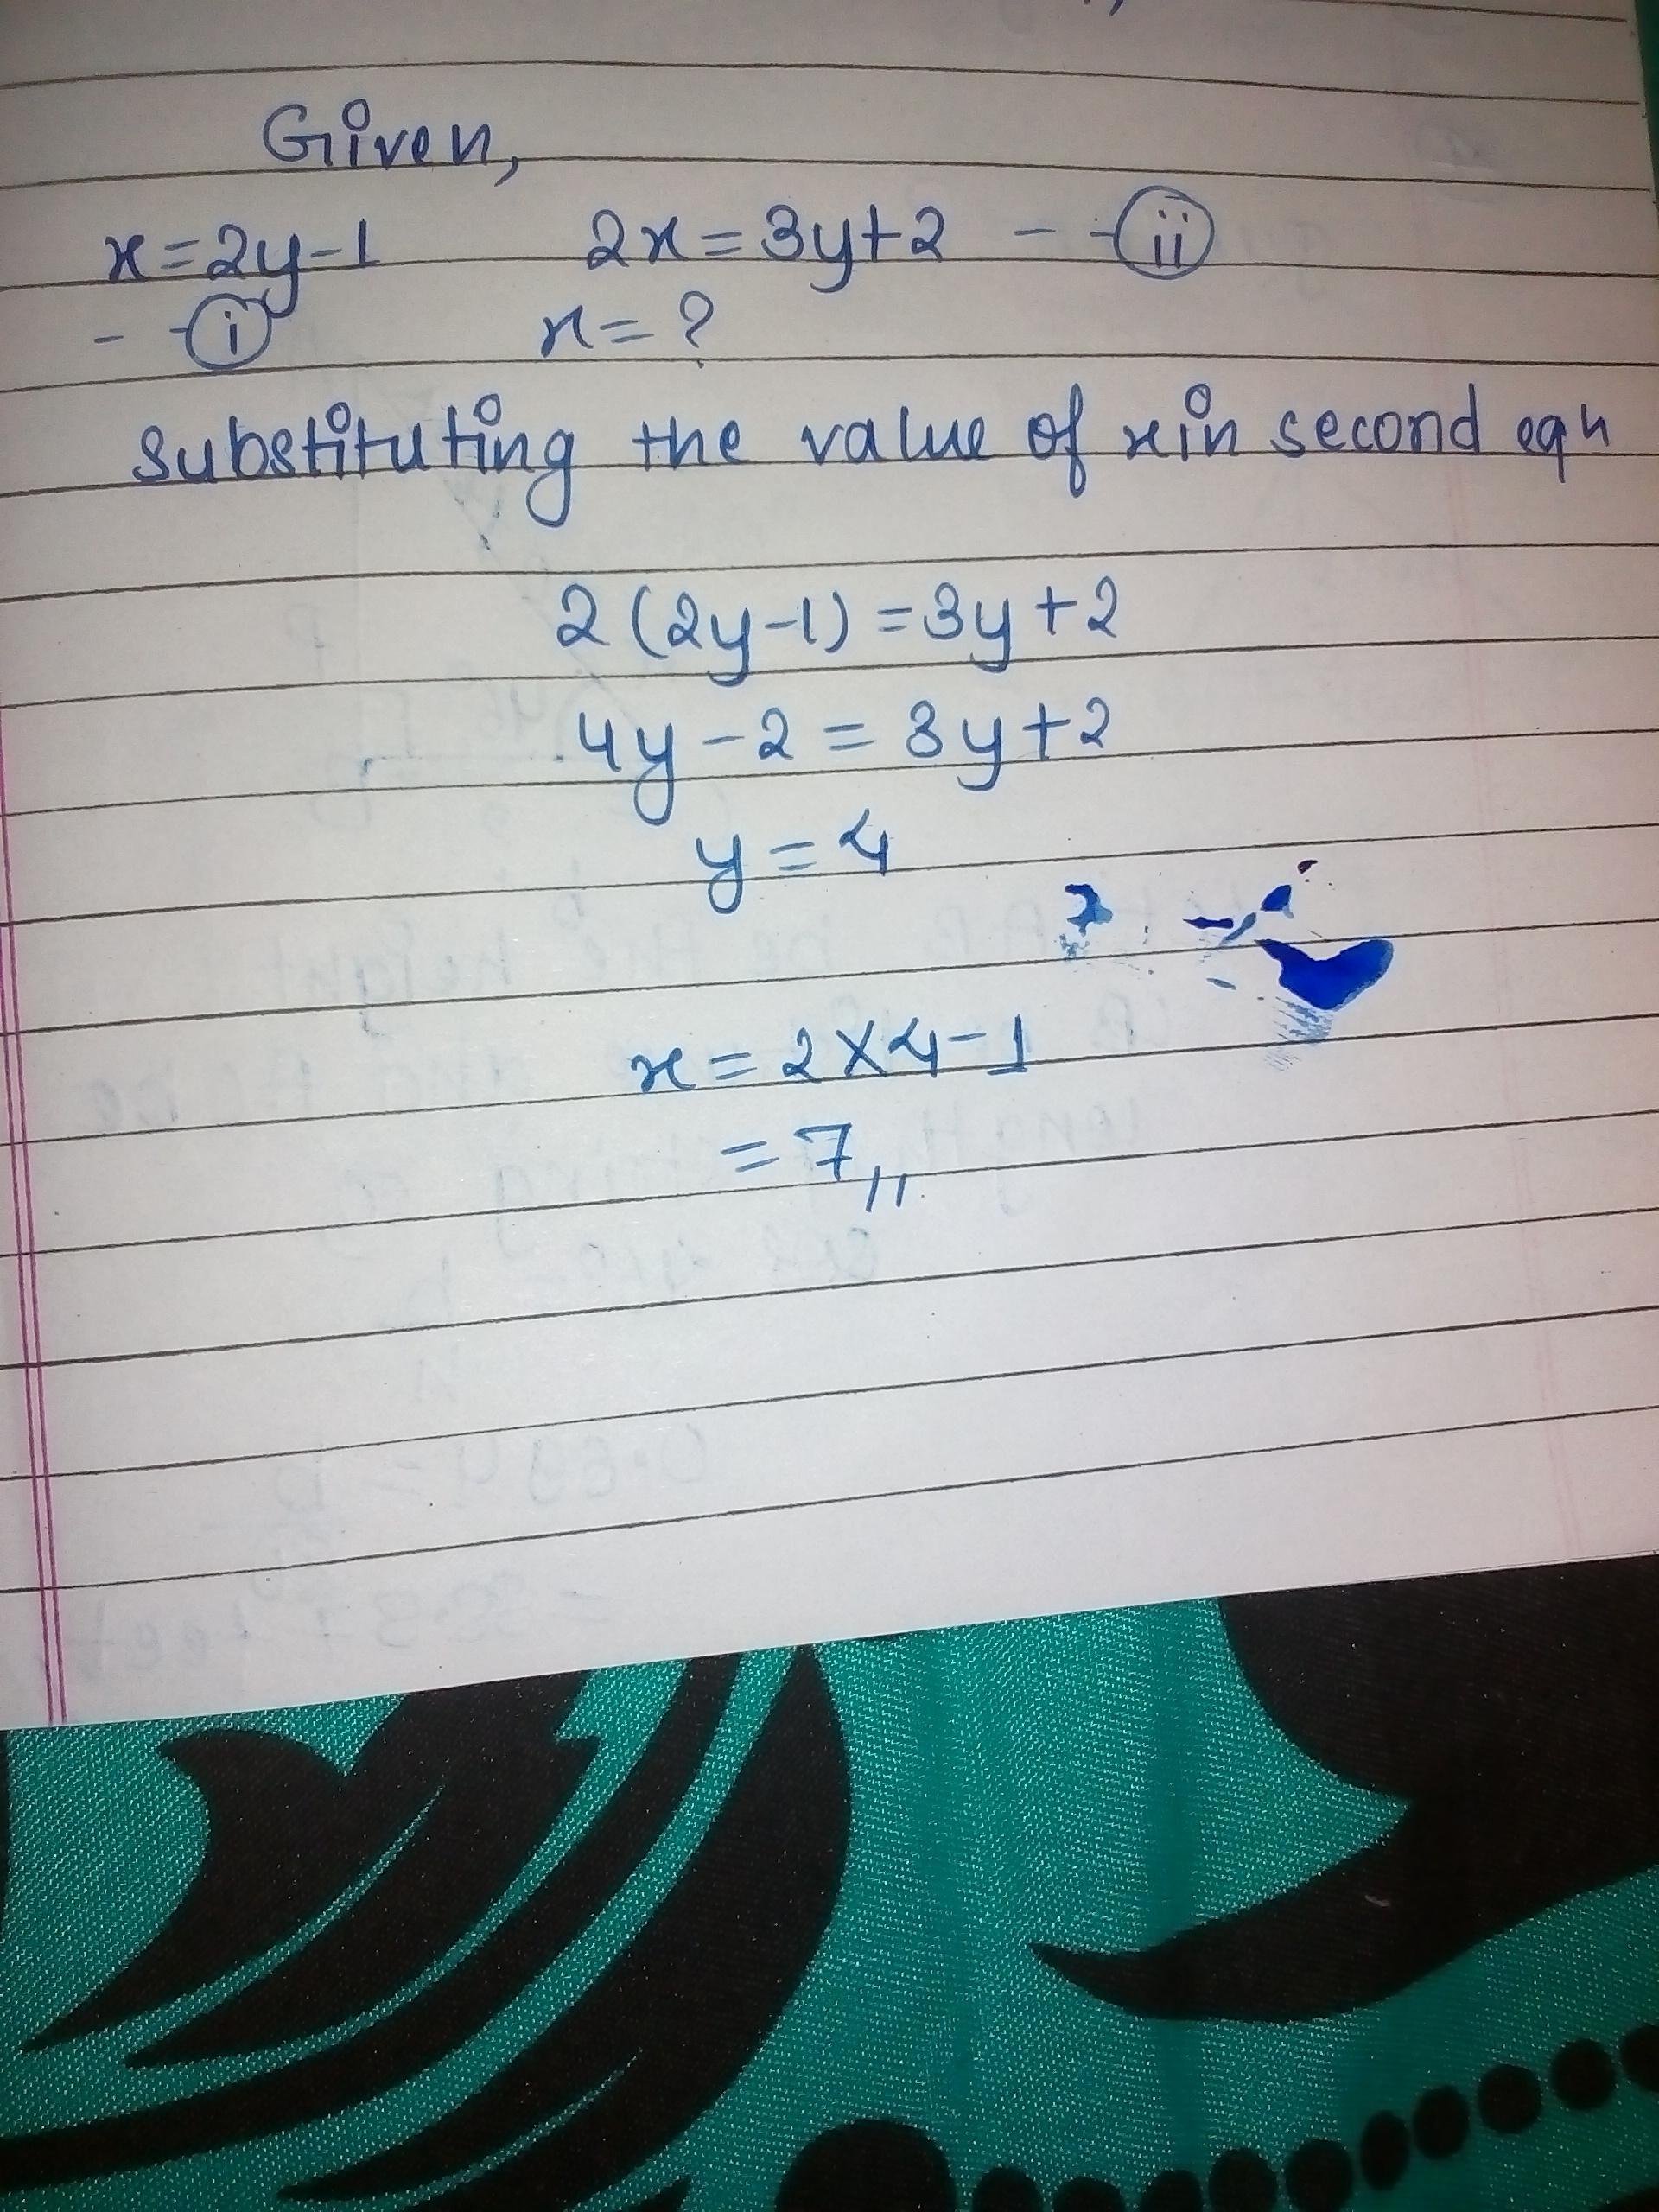 Given,
x=2y-1 2x=3y+2 - - ii
- - i x=?
substituting the value of x in second eqn
2(2y-1)=3y+2
4y-2=3y+2
y=4
x=2×4-1
=7,,